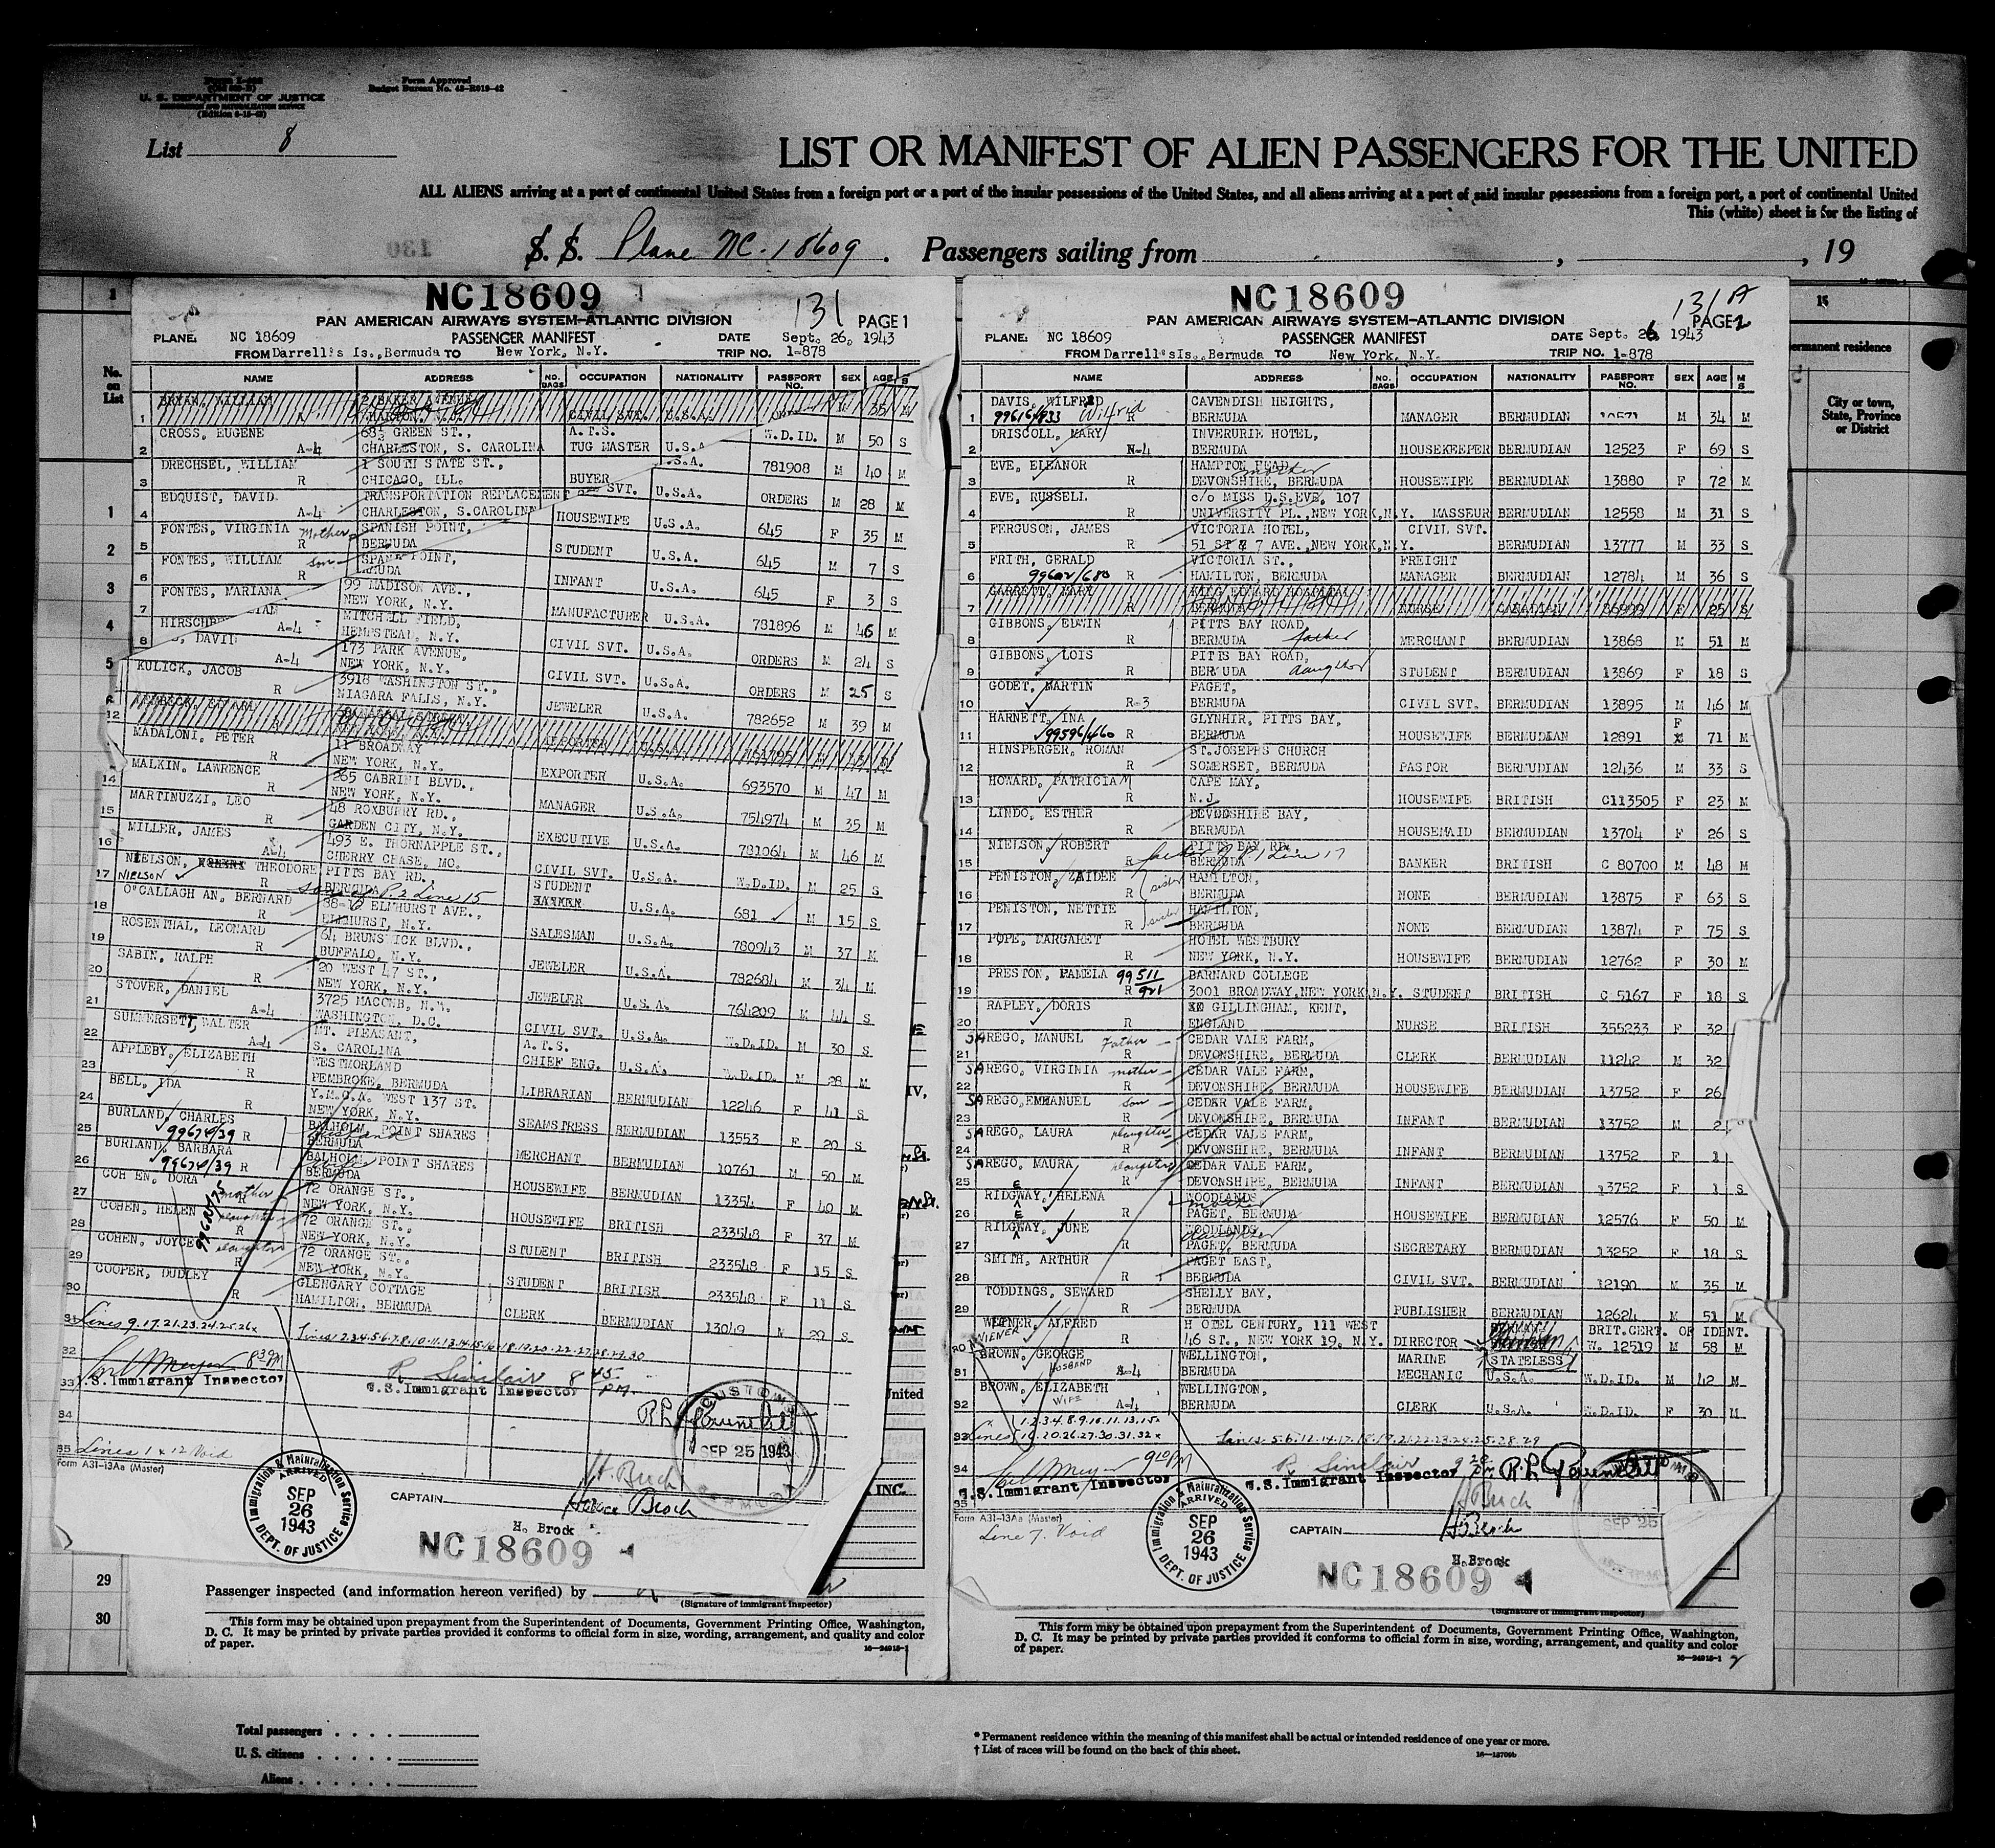 Form Approved
Budget Bureau No. 43-R019-42
U. S. DEPARTMENT OF JUSTICE
IMMIGRATION AND NATURALIZATION SERVICE
List 8
LIST OR MANIFEST OF ALIEN PASSENGERS FOR THE UNITED
ALL ALIENS arriving at a port of continental United States from a foreign port or a port of the insular possessions of the United States, and all aliens arriving at a port of said insular possessions from a foreign port, a port of continental United
This (white) sheet is for the listing of
S. S. Plane NC-18609. Passengers sailing from , , 19
No. on List
NC18609
131
PAN AMERICAN AIRWAYS SYSTEM-ATLANTIC DIVISION PAGE 1
PLANE: NC 18609 PASSENGER MANIFEST DATE Sept. 26, 1943
FROM Darrell's Is., Bermuda TO New York, N.Y. TRIP NO. 1-878
NAME ADDRESS NO. BAGS OCCUPATION NATIONALITY PASSPORT NO. SEX AGE M S
BRYAN, WILLIAM 2 BAKER AVENUE
1 CIVIL SVT. U.S.A. M 35 M
CROSS, EUGENE 68½ GREEN ST., A.T.S.
2 A-4 CHARLESTON, S. CAROLINA TUG MASTER U.S.A W.D.ID. M 50 S
DRECHSEL, WILLIAM 1 SOUTH STATE ST.,
3 R CHICAGO, ILL. BUYER U.S.A. 781908 M 40 M
EDQUIST, DAVID TRANSPORTATION REPLACEMENT
4 A-4 CHARLESTON, S.CAROLINA SVT. U.S.A. ORDERS M 28 M
FONTES, VIRGINIA Mother SPANISH POINT,
5 R BERMUDA HOUSEWIFE U.S.A. 645 F 35 M
FONTES, WILLIAM son SPAN POINT,
6 R MUDA STUDENT U.S.A. 645 M 7 S
FONTES, MARIANA
7 INFANT U.S.A. 645 F 3 S
HIRSCH 99 MADISON AVE.,
8 A-4 NEW YORK, N.Y. MANUFACTURER U.S.A. 781896 M 46 M
DAVID MITCHELL FIELD,
A-4 HEMPSTEAD, N.Y. CIVIL SVT. U.S.A. ORDERS M 24 S
173 PARK AVENUE,
NEW YORK, N.Y. CIVIL SVT. U.S.A. ORDERS M 25 S
KULICK, JACOB 3918 WASHINGTON ST.,
R NIAGARA FALLS, N.Y. JEWELER U.S.A. 782652 M 39 M
12
MADALONI, PETER 11 BROADWAY
R NEW YORK, N.Y. EXPORTER U.S.A. 693570 M 47 M
MALKIN, LAWRENCE 365 CABRINI BLVD.,
14 R NEW YORK, N.Y. MANAGER U.S.A. 754974 M 35 M
MARTINUZZI, LEO 48 ROXBURRY RD.,
15 R GARDEN CITY, N.Y. EXECUTIVE U.S.A. 781064 M 46 M
MILLER, JAMES 493 E. THORNAPPLE ST.,
16 A-4 CHERRY CHASE, MO. CIVIL SVT. U.S.A. W.D.ID. M 25 S
NIELSON, THEODORE PITTS BAY RD., STUDENT
17 NIELSON R BERMUDA son of P2 Line 15 U.S.A. 681 M 15 S
O'CALLAGH AN, BERNARD ELMHURST AVE.,
18 R ELMHURST, N.Y. SALESMAN U.S.A. 780943 M 37 M
ROSENTHAL, LEONARD 64 BRUNSWICK BLVD.,
19 R BUFFALO, N.Y. JEWELER U.S.A. 782684 M 34 M
SABIN, RALPH 20 WEST 47 ST.,
20 R NEW YORK, N.Y. JEWELER U.S.A. 764209 M 44 S
STOVER, DANIEL 3725 MACOMB, N.W.
21 A-4 WASHINGTON, D.C. CIVIL SVT. U.S.A. W.D.ID. M 30 S
SUMMERSETT, WALTER MT. PLEASANT, A.T.S.
22 A-4 S. CAROLINA CHIEF ENG. U.S.A. W.D.ID. M 28 M
APPLEBY, ELIZABETH WESTMORLAND
23 R PEMBROKE, BERMUDA LIBRARIAN BERMUDIAN 12246 F 41 S
BELL, IDA Y.M.C.A. WEST 137 ST.
24 R NEW YORK, N.Y. SEAMSTRESS BERMUDIAN 13553 F 20 S
BURLAND, CHARLES BALHOLM, POINT SHARES
25 99674/39 R BERMUDA MERCHANT BERMUDIAN 10761 M 50 M
BURLAND, BARBARA BALHOLM, POINT SHARES
26 99674/39 R BERMUDA HOUSEWIFE BERMUDIAN 13354 F 40 M
COH EN, DORA mother 72 ORANGE ST.,
27 R NEW YORK, N.Y. HOUSEWIFE BRITISH 233548 F 37 M
COHEN, HELEN daughter 72 ORANGE ST.,
28 R NEW YORK, N.Y. STUDENT BRITISH 233548 F 15 S
COHEN, JOYCE daughter 72 ORANGE ST.,
29 R NEW YORK, N.Y. STUDENT BRITISH 233548 F 11 S
COOPER, DUDLEY GLENGARY COTTAGE
30 R HAMILTON, BERMUDA CLERK BERMUDIAN 13049 M 20 S
31 Lines 9.17.21.23.24.25.26x Lines 2.3.4.5.6.7.8.10.11.13.14.15.16.18.19.20.22.27.28.29.30
32 8 30 PM R. Sinclair 8 45 PM
33 U.S. Immigrant Inspector U.S. Immigrant Inspector
34 CUSTOMS SEP 25 1943 BERMUDA
35 Lines 1 & 12 Void
Form A31-13Aa (Master)
Immigration & Naturalization Service ARRIVED SEP 26 1943 DEPT. OF JUSTICE
CAPTAIN
H. Brock
NC18609
29
30
Passenger inspected (and information hereon verified) by
(Signature of immigrant inspector)
This form may be obtained upon prepayment from the Superintendent of Documents, Government Printing Office, Washington,
D. C. It may be printed by private parties provided it conforms to official form in size, wording, arrangement, and quality and color
of paper.
NC18609
131 A
PAN AMERICAN AIRWAYS SYSTEM-ATLANTIC DIVISION PAGE 2
PLANE: NC 18609 PASSENGER MANIFEST DATE Sept. 26 1943
FROM Darrell's Is., Bermuda TO New York, N.Y. TRIP NO. 1-878
NAME ADDRESS NO. BAGS OCCUPATION NATIONALITY PASSPORT NO. SEX AGE M S
DAVIS, WILFRED CAVENDISH HEIGHTS,
1 99616/933 Wilfrid R BERMUDA MANAGER BERMUDIAN 10571 M 34 M
DRISCOLL, MARY INVERURIE HOTEL,
2 N-4 BERMUDA HOUSEKEEPER BERMUDIAN 12523 F 69 S
EVE, ELEANOR HAMPTON HEAD, mother
3 R DEVONSHIRE, BERMUDA HOUSEWIFE BERMUDIAN 13880 F 72 M
EVE, RUSSELL c/o MISS D.S.EVE, 107
4 R UNIVERSITY PL., NEW YORK,N.Y. MASSEUR BERMUDIAN 12558 M 31 S
FERGUSON, JAMES VICTORIA HOTEL, CIVIL SVT.
5 R 51 ST & 7 AVE.,NEW YORK,N.Y. BERMUDIAN 13777 M 33 S
FRITH, GERALD VICTORIA ST., FREIGHT
6 99602/680 R HAMILTON, BERMUDA MANAGER BERMUDIAN 12784 M 36 S
GARRETT, MARY KING EDWARD HOSPITAL
7 R BERMUDA NURSE CANADIAN 86999 F 25 S
GIBBONS, EDWIN PITTS BAY ROAD,
8 R BERMUDA father MERCHANT BERMUDIAN 13868 M 51 M
GIBBONS, LOIS PITTS BAY ROAD,
9 R BERMUDA daughter STUDENT BERMUDIAN 13869 F 18 S
GODET, MARTIN PAGET,
10 R-3 BERMUDA CIVIL SVT. BERMUDIAN 13895 M 46 M
HARNETT, INA GLYNHIR, PITTS BAY, F
11 99596/460 R BERMUDA HOUSEWIFE BERMUDIAN 12891 71 M
HINSPERGER, ROMAN ST.JOSEPHS CHURCH
12 R SOMERSET, BERMUDA PASTOR BERMUDIAN 12436 M 33 S
HOWARD, PATRICIA M CAPE MAY,
13 R N.J. HOUSEWIFE BRITISH C113505 F 23 M
LINDO, ESTHER DEVONSHIRE BAY,
14 R BERMUDA HOUSEMAID BERMUDIAN 13704 F 26 S
NIELSON, ROBERT PITTS BAY RD.
15 R father P1 Line 17 BERMUDA BANKER BRITISH C 80700 M 48 M
PENISTON, ZAIDEE sister HAMILTON,
16 R BERMUDA NONE BERMUDIAN 13875 F 63 S
PENISTON, NETTIE sister HAMILTON,
17 R BERMUDA NONE BERMUDIAN 13874 F 75 S
POPE, MARGARET HOTEL WESTBURY
18 R NEW YORK, N.Y. HOUSEWIFE BERMUDIAN 12762 F 30 M
PRESTON, PAMELA 99511/921 BARNARD COLLEGE
19 R 3001 BROADWAY,NEW YORK,N.Y. STUDENT BRITISH C 5167 F 18 S
RAPLEY, DORIS GILLINGHAM, KENT,
20 R ENGLAND NURSE BRITISH 355233 F 32
SAREGO, MANUEL Father CEDAR VALE FARM,
21 R DEVONSHIRE, BERMUDA CLERK BERMUDIAN 11242 M 32
SAREGO, VIRGINIA mother CEDAR VALE FARM,
22 R DEVONSHIRE, BERMUDA HOUSEWIFE BERMUDIAN 13752 F 26
SAREGO,EMMANUEL son CEDAR VALE FARM,
23 R DEVONSHIRE, BERMUDA INFANT BERMUDIAN 13752 M 2
SAREGO, LAURA daughter CEDAR VALE FARM,
24 R DEVONSHIRE, BERMUDA INFANT BERMUDIAN 13752 F 1
SAREGO, MAURA daughter CEDAR VALE FARM,
25 R DEVONSHIRE, BERMUDA INFANT BERMUDIAN 13752 F 1 S
RIDGWAY, HELENA WOODLANDS, mother
26 E R PAGET, BERMUDA HOUSEWIFE BERMUDIAN 12576 F 50 M
RIDGWAY, JUNE WOODLANDS, daughter
27 E R PAGET, BERMUDA SECRETARY BERMUDIAN 13252 F 18 S
SMITH, ARTHUR PAGET EAST,
28 R BERMUDA CIVIL SVT. BERMUDIAN 12190 M 35 M
TODDINGS, SEWARD SHELLY BAY,
29 R BERMUDA PUBLISHER BERMUDIAN 12624 M 51 M
ALFRED H OTEL CENTURY, 111 WEST BRIT.CERT. OF IDENT.
30 WIENER R 46 ST., NEW YORK 19, N.Y. DIRECTOR STATELESS W. 12519 M 58 M
BROWN, GEORGE HUSBAND WELLINGTON, MARINE
31 A-4 BERMUDA MECHANIC U.S.A. W.D.ID. M 42 M
BROWN, ELIZABETH WIFE WELLINGTON,
32 A-4 BERMUDA CLERK U.S.A. W.D.ID. F 30 M
33 Lines 1.2.3.4.8.9.10.11.13.15x 16.20.26.27.30.31.32x Lines 5.6.12.14.17.18.19.21.22.23.24.25.28.29
34 9 10 PM R. Sinclair 9 20 PM
35 U.S. Immigrant Inspector U.S. Immigrant Inspector
Form A31-13Aa (Master)
Line 7. Void
Immigration & Naturalization Service ARRIVED SEP 26 1943 DEPT. OF JUSTICE
SEP 25
CAPTAIN H. Brock
H. Brock
NC18609
(Signature of immigrant inspector)
This form may be obtained upon prepayment from the Superintendent of Documents, Government Printing Office, Washington,
D. C. It may be printed by private parties provided it conforms to official form in size, wording, arrangement, and quality and color
of paper.
15
permanent residence
City or town, State, Province or District
Total passengers
U. S. citizens
Aliens
* Permanent residence within the meaning of this manifest shall be actual or intended residence of one year or more.
† List of races will be found on the back of this sheet.